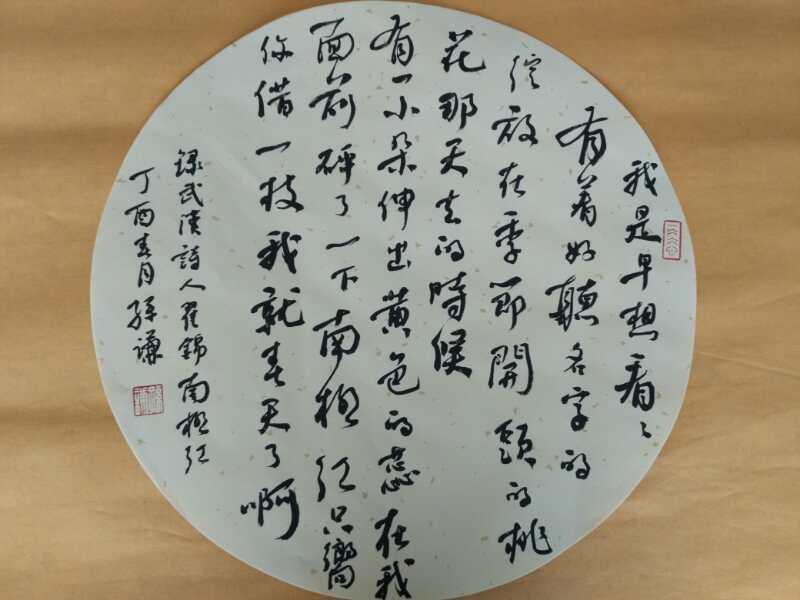 我是早想看看
有着好聽名字的
綻放在季節開頭的桃
花那天去的時候
有一小朵伸出黄色的蕊在我
面前砰了一下南极红只嚮
你借一枝我就春天了啊
録武漢詩人翟錦南极红
丁酉春月孫謙